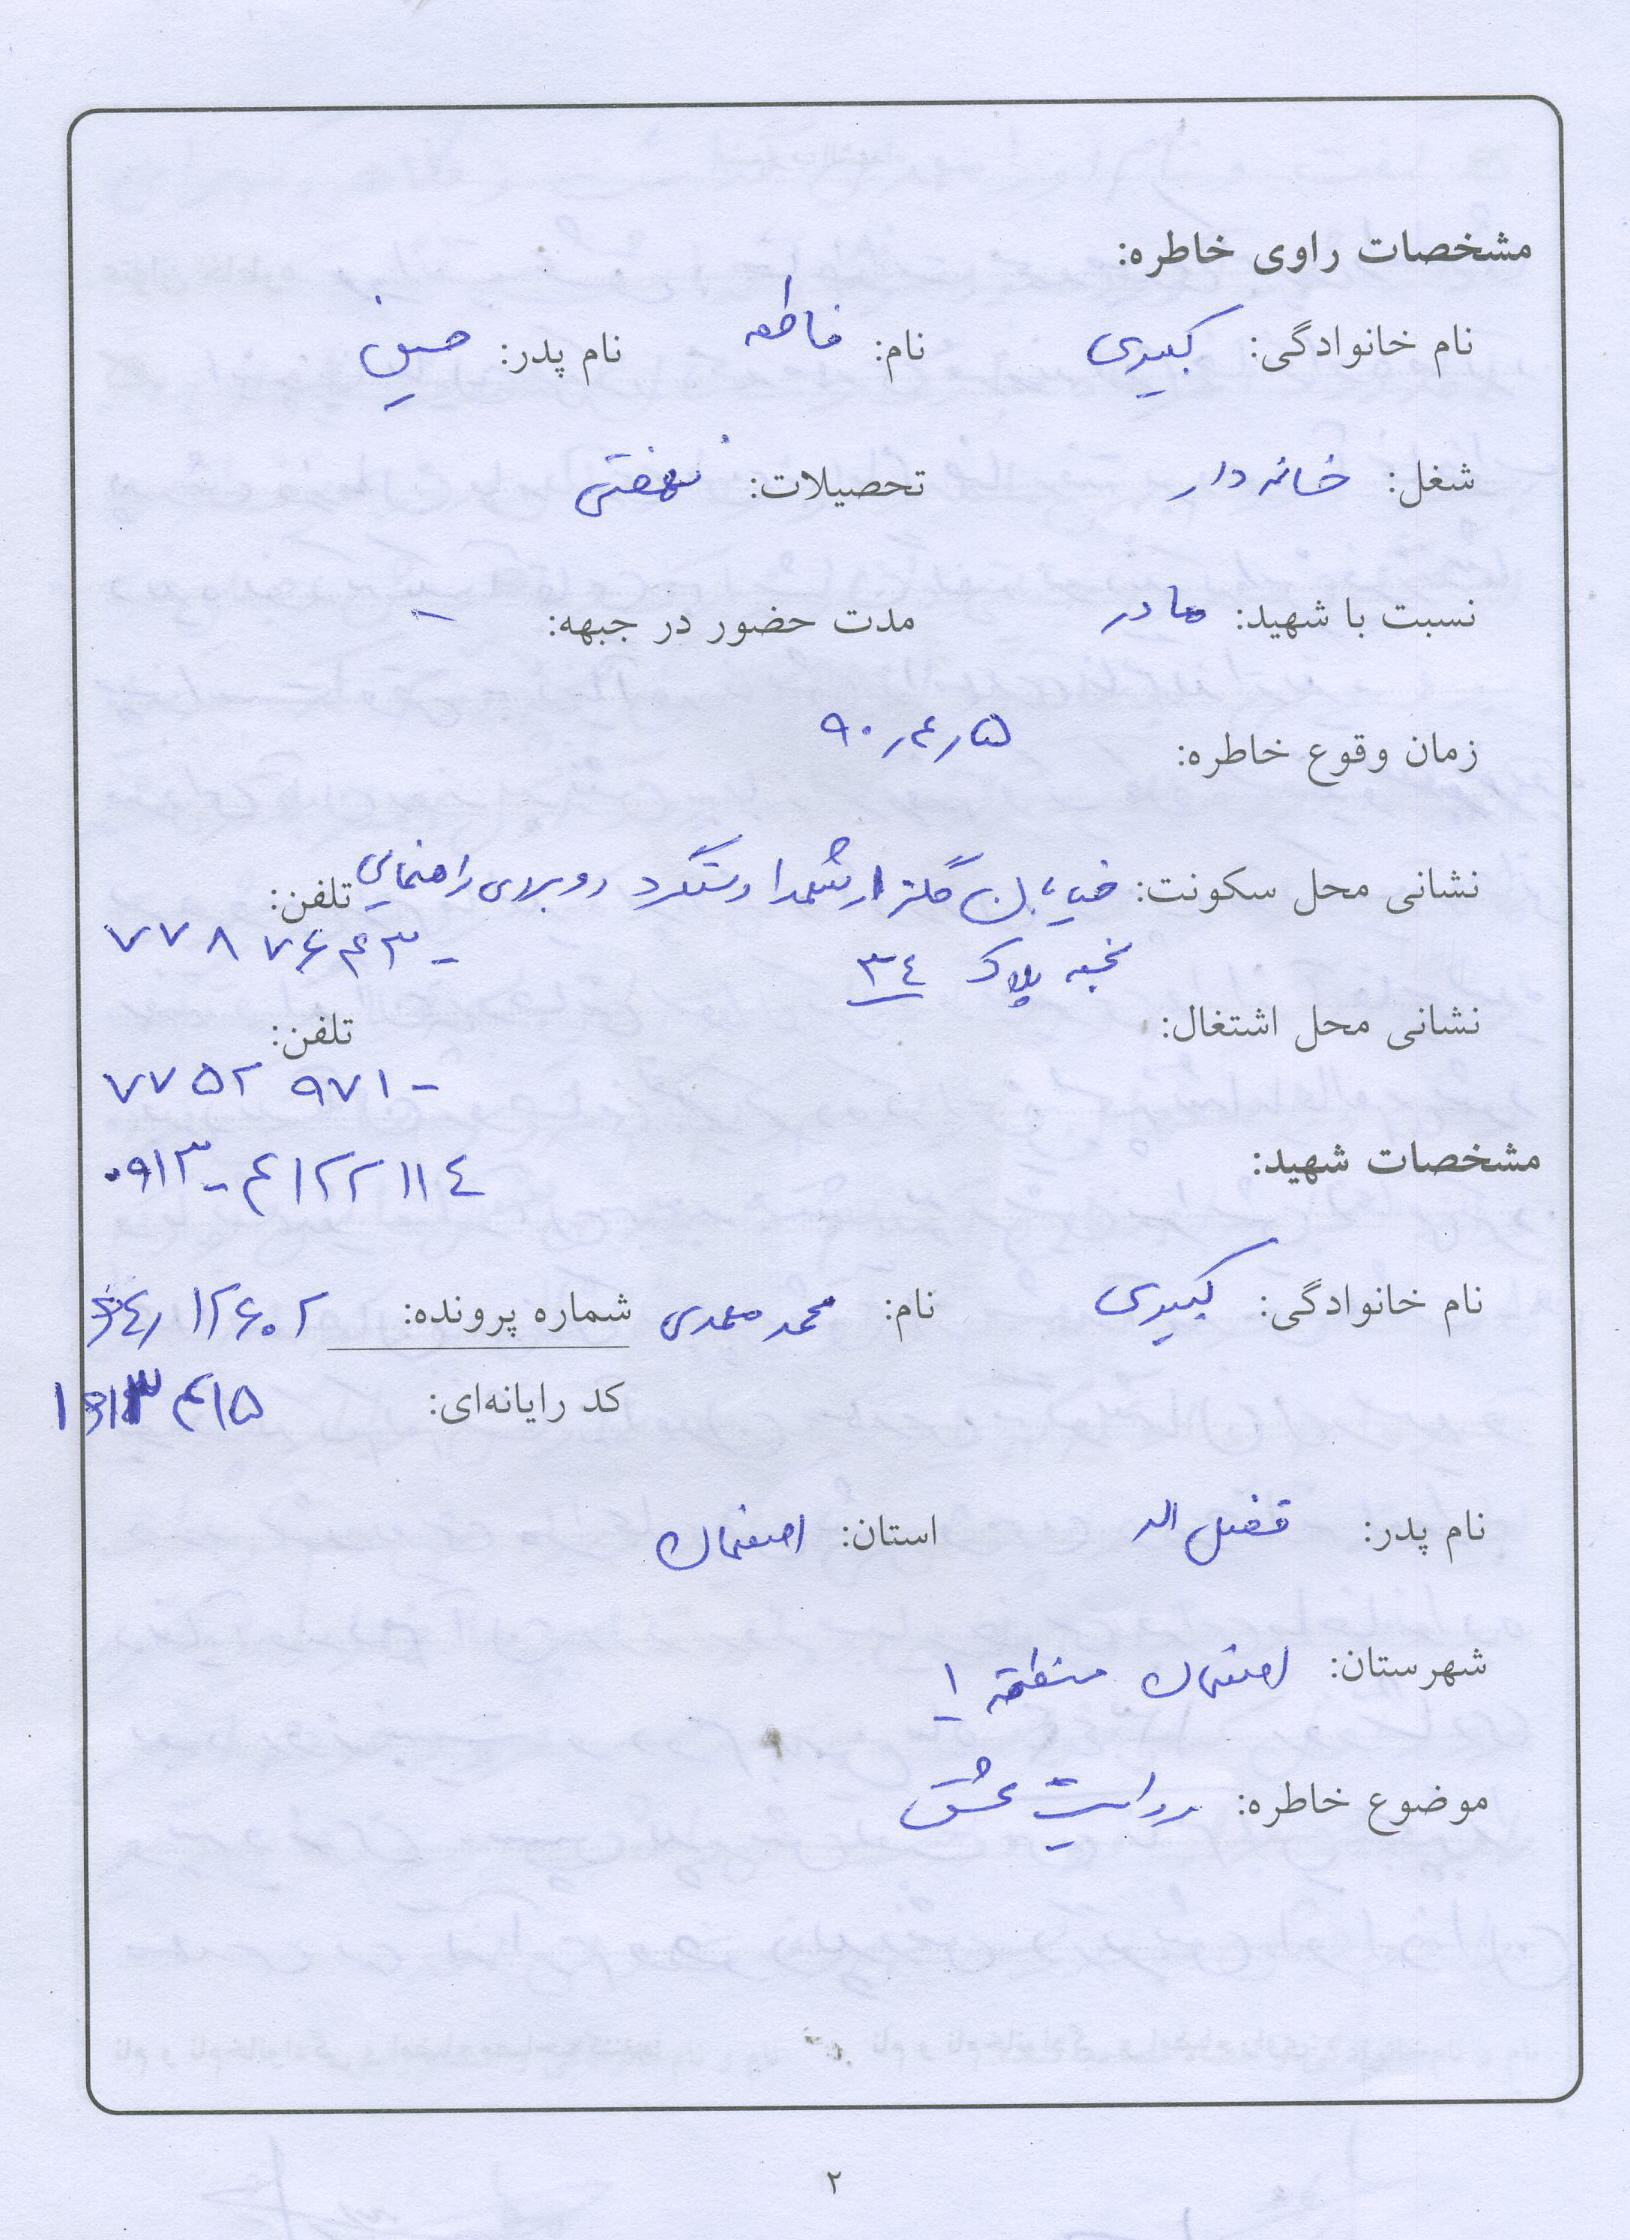 مشخصات راوی خاطره:
نام خانوادگی: کبیری نام: فاطمه نام پدر: حسین
شغل: خانه دار تحصیلات: نهضتی
نسبت با شهید: مادر مدت حضور در جبهه: –
زمان وقوع خاطره: ۹۰/۴/۵
نشانی محل سکونت: خیابان گلزار شهدا دستگرد روبروی راهنمایی تلفن:
نجمه پلاک ۳۴ ۷۷۸۷۶۴۳-
نشانی محل اشتغال: تلفن:
۷۷۵۲۹۷۱-
مشخصات شهید: ۰۹۱۳-۴۱۲۲۱۱۴
نام خانوادگی: کبیری نام: محمد مهدی شماره پرونده: ۶۴/۱۲۶۰۲
کد رایانه‌ای:
نام پدر: فضل اله استان: اصفهان
شهرستان: اصفهان منطقه ۱
موضوع خاطره: روایت عشق
۲